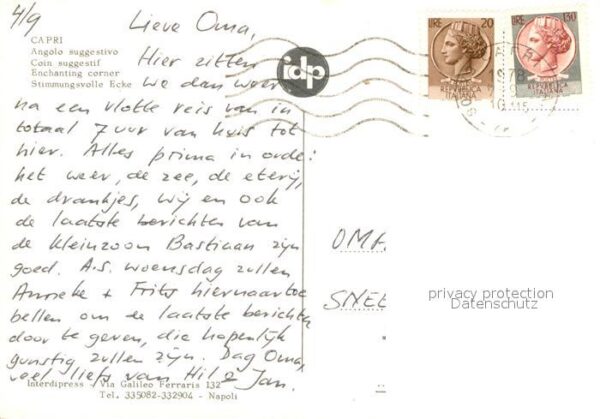 4/9
Lieve Oma,
CAPRI
Angolo suggestivo
Coin suggestif
Enchanting corner
Stimmungsvolle Ecke
Hier zitten
we dan weer
na een vlotte reis van in
totaal 7 uur van huis tot
hier. Alles prima in orde:
het weer, de zee, de eterij,
de drankjes, wij en ook
de laatste berichten van
de kleinzoon Bastiaan zijn
goed. A.s. woensdag zullen
Anneke + Frits hiernaartoe
bellen om de laatste berichten
door te geven, die hopenlijk
gunstig zullen zijn. Dag Oma,
veel liefs van Hil & Jan.
Interdipress Via Galileo Ferraris 132
Tel. 335082-332904 - Napoli
idp
LIRE 20
REPUBBLICA
ITALIANA
LIRE 130
REPUBBLICA
ITALIANA
1978
OMA
SNEE
privacy protection
Datenschutz